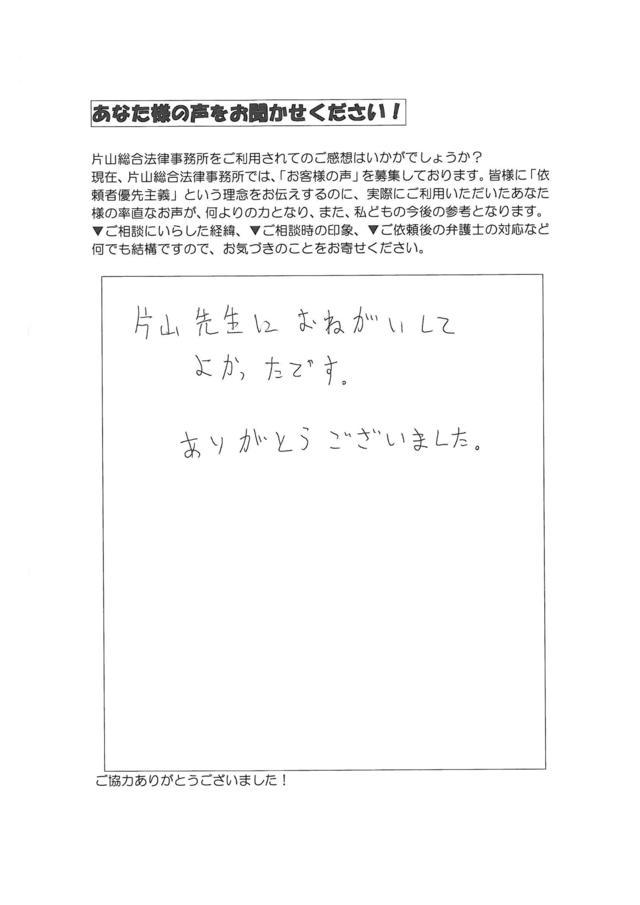 あなた様の声をお聞かせください！
片山総合法律事務所をご利用されてのご感想はいかがでしょうか？
現在、片山総合法律事務所では、「お客様の声」を募集しております。皆様に「依
頼者優先主義」という理念をお伝えするのに、実際にご利用いただいたあなた
様の率直なお声が、何よりの力となり、また、私どもの今後の参考となります。
▼ご相談にいらした経緯、▼ご相談時の印象、▼ご依頼後の弁護士の対応など
何でも結構ですので、お気づきのことをお寄せください。
片山先生におねがいして
よかったです。
ありがとうございました。
ご協力ありがとうございました！